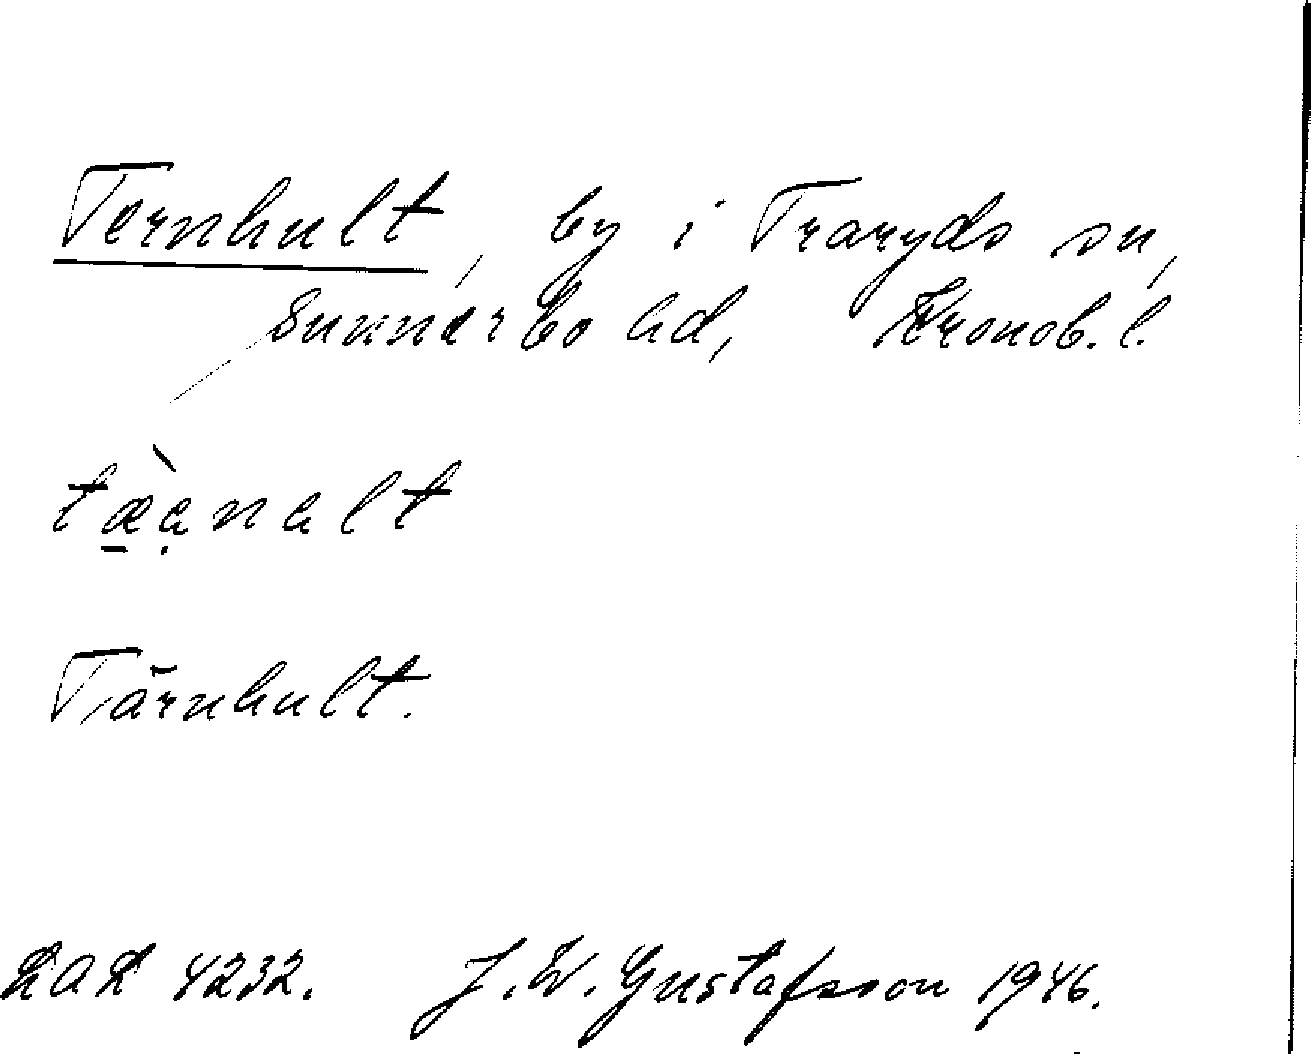 Ternhult, by i Traryds sn,
Sunnerbo hd, Kronob. l.
tæ̠̀ạnalt
Tärnhult.
LAL 4232. J. W. Gustafsson 1946.